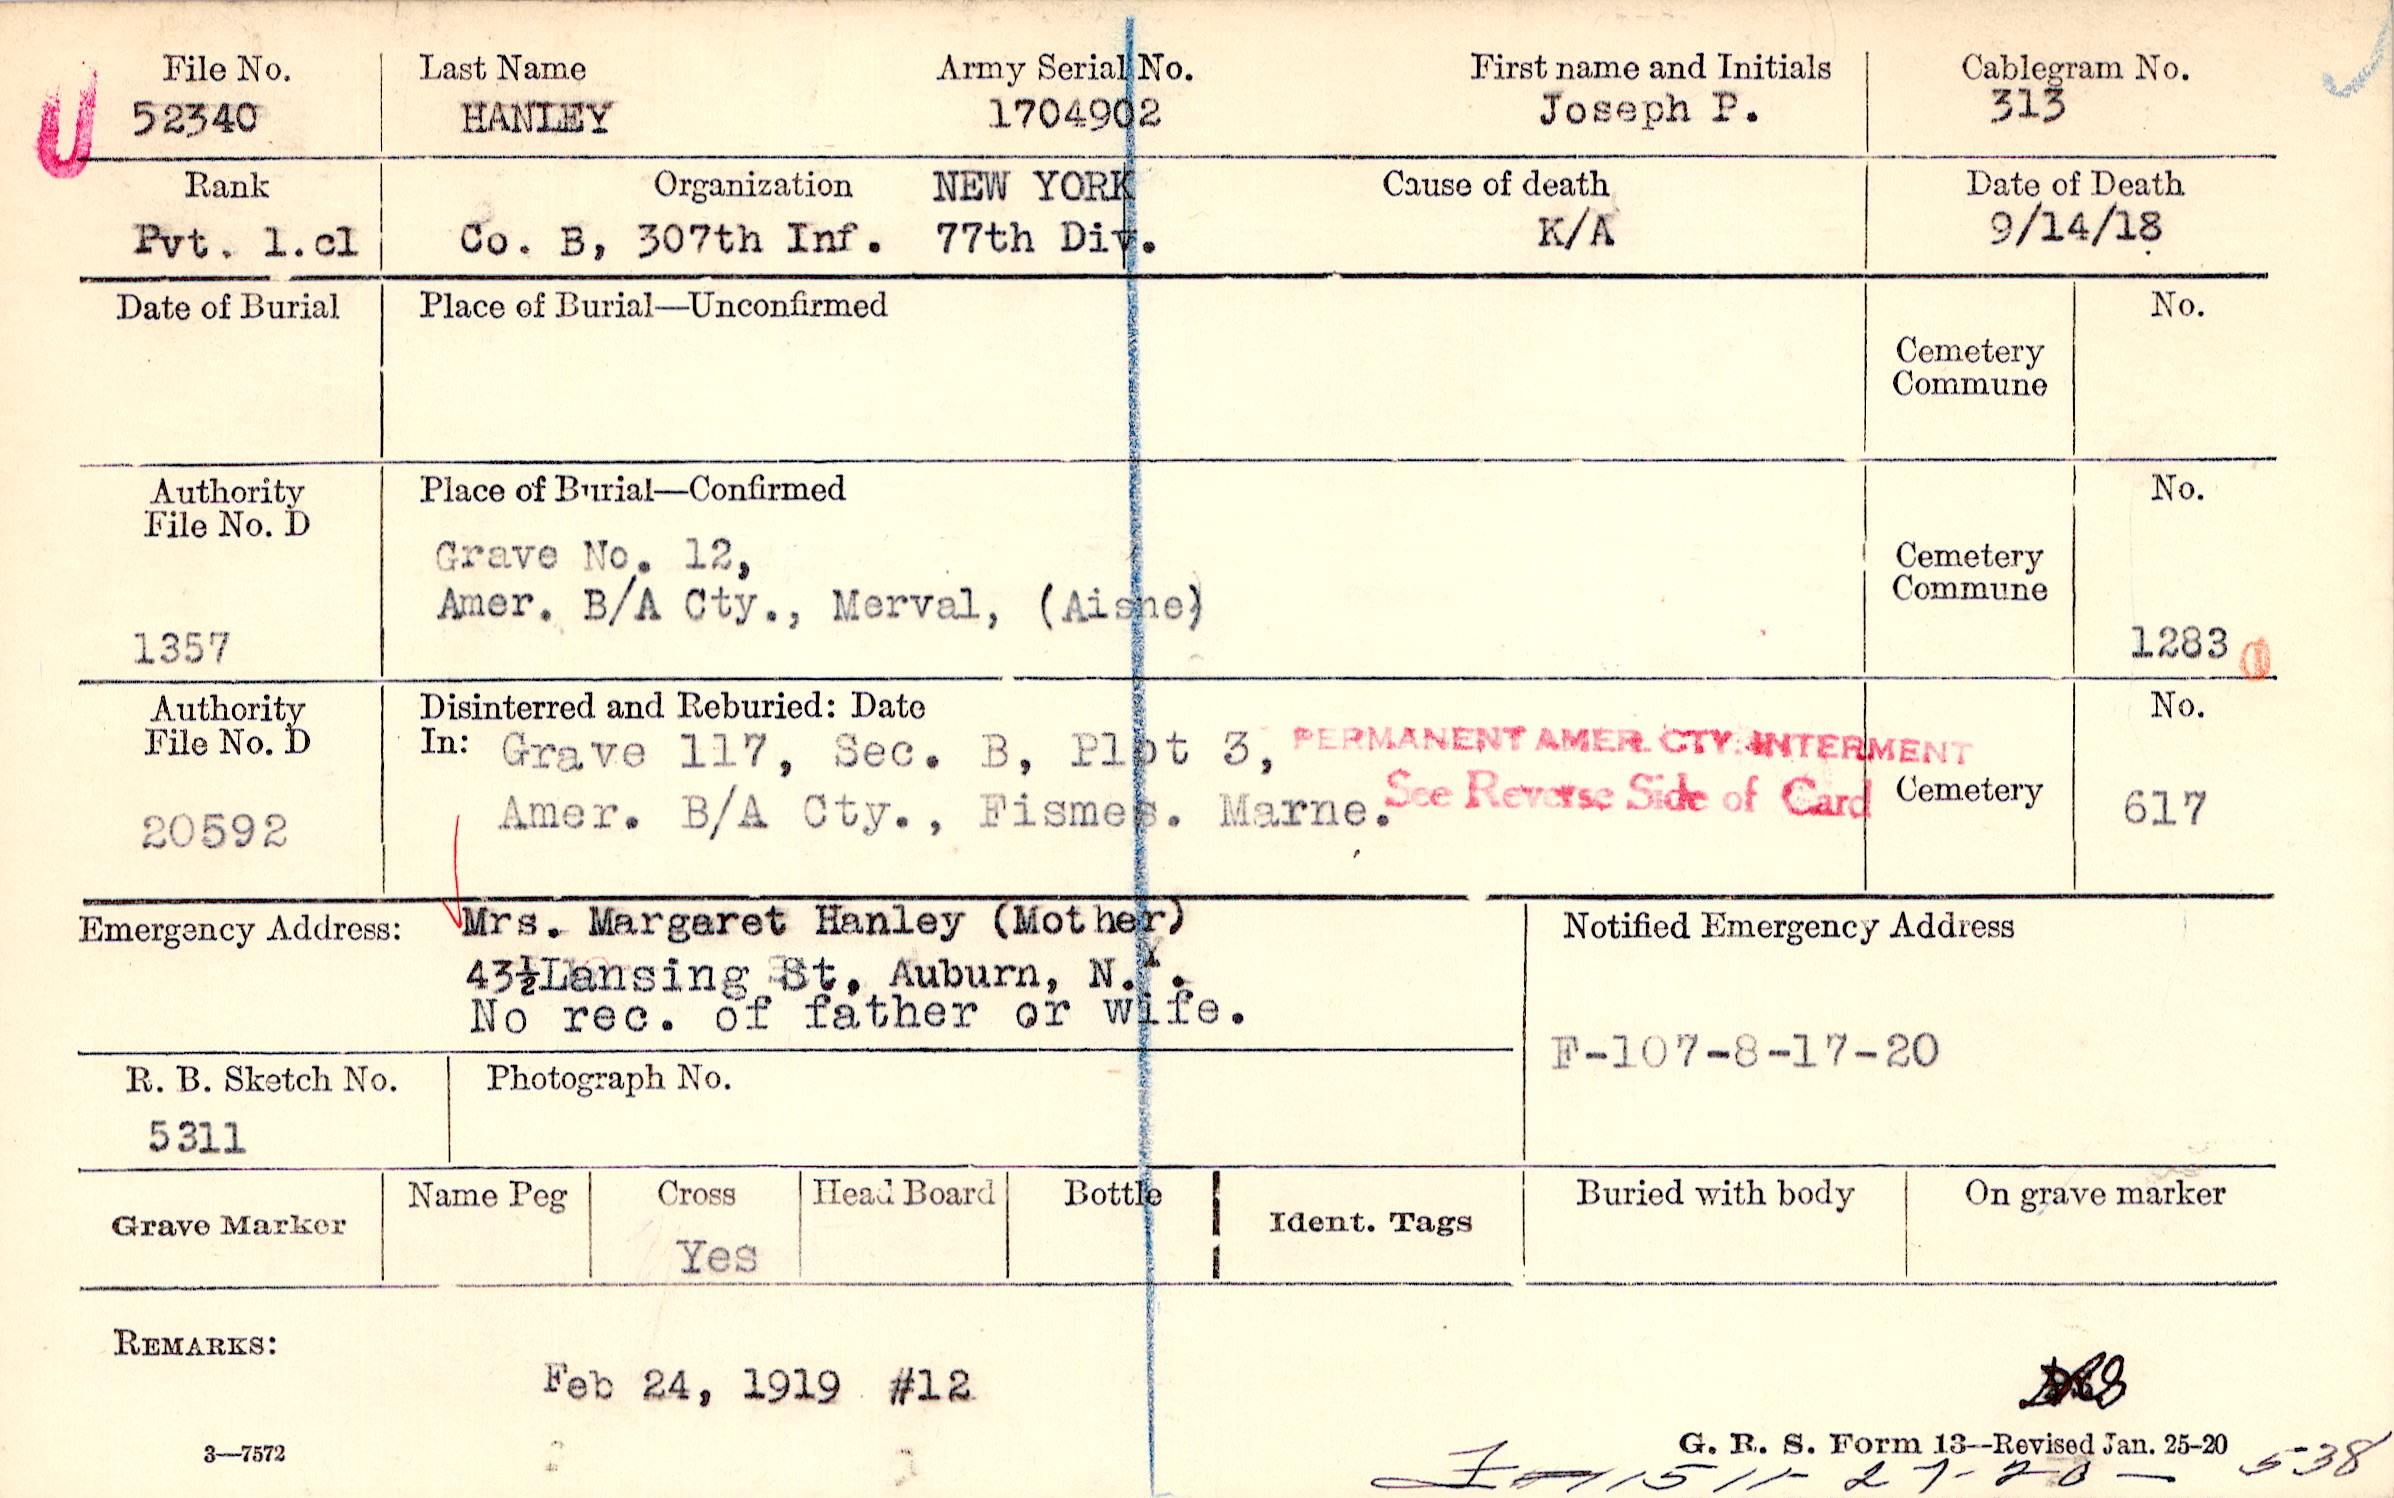 File No. Last Name Army Serial No. First name and Initials Cablegram No.
52340 HANLEY 1704902 Joseph P. 313
Rank Organization NEW YORK Cause of death Date of Death
Pvt. 1.cl Co. B, 307th Inf. 77th Div. K/A 9/14/18
Date of Burial Place of Burial—Unconfirmed No.
Cemetery
Commune
Authority Place of Burial—Confirmed No.
File No. D
Grave No. 12, Cemetery
Amer. B/A Cty., Merval, (Aisne) Commune
1357 1283
Authority Disinterred and Reburied: Date No.
File No. D In: Grave 117, Sec. B, Plot 3, PERMANENT AMER. CTY. INTERMENT
20592 Amer. B/A Cty., Fismes. Marne. See Reverse Side of Card Cemetery 617
Emergency Address: Mrs. Margaret Hanley (Mother) Notified Emergency Address
43½Lansing St, Auburn, N.Y.
No rec. of father or wife.
F-107-8-17-20
R. B. Sketch No. Photograph No.
5311
Grave Marker Name Peg Cross Head Board Bottle Ident. Tags Buried with body On grave marker
Yes
REMARKS:
Feb 24, 1919 #12
3—7572 G. R. S. Form 13—Revised Jan. 25-20
538